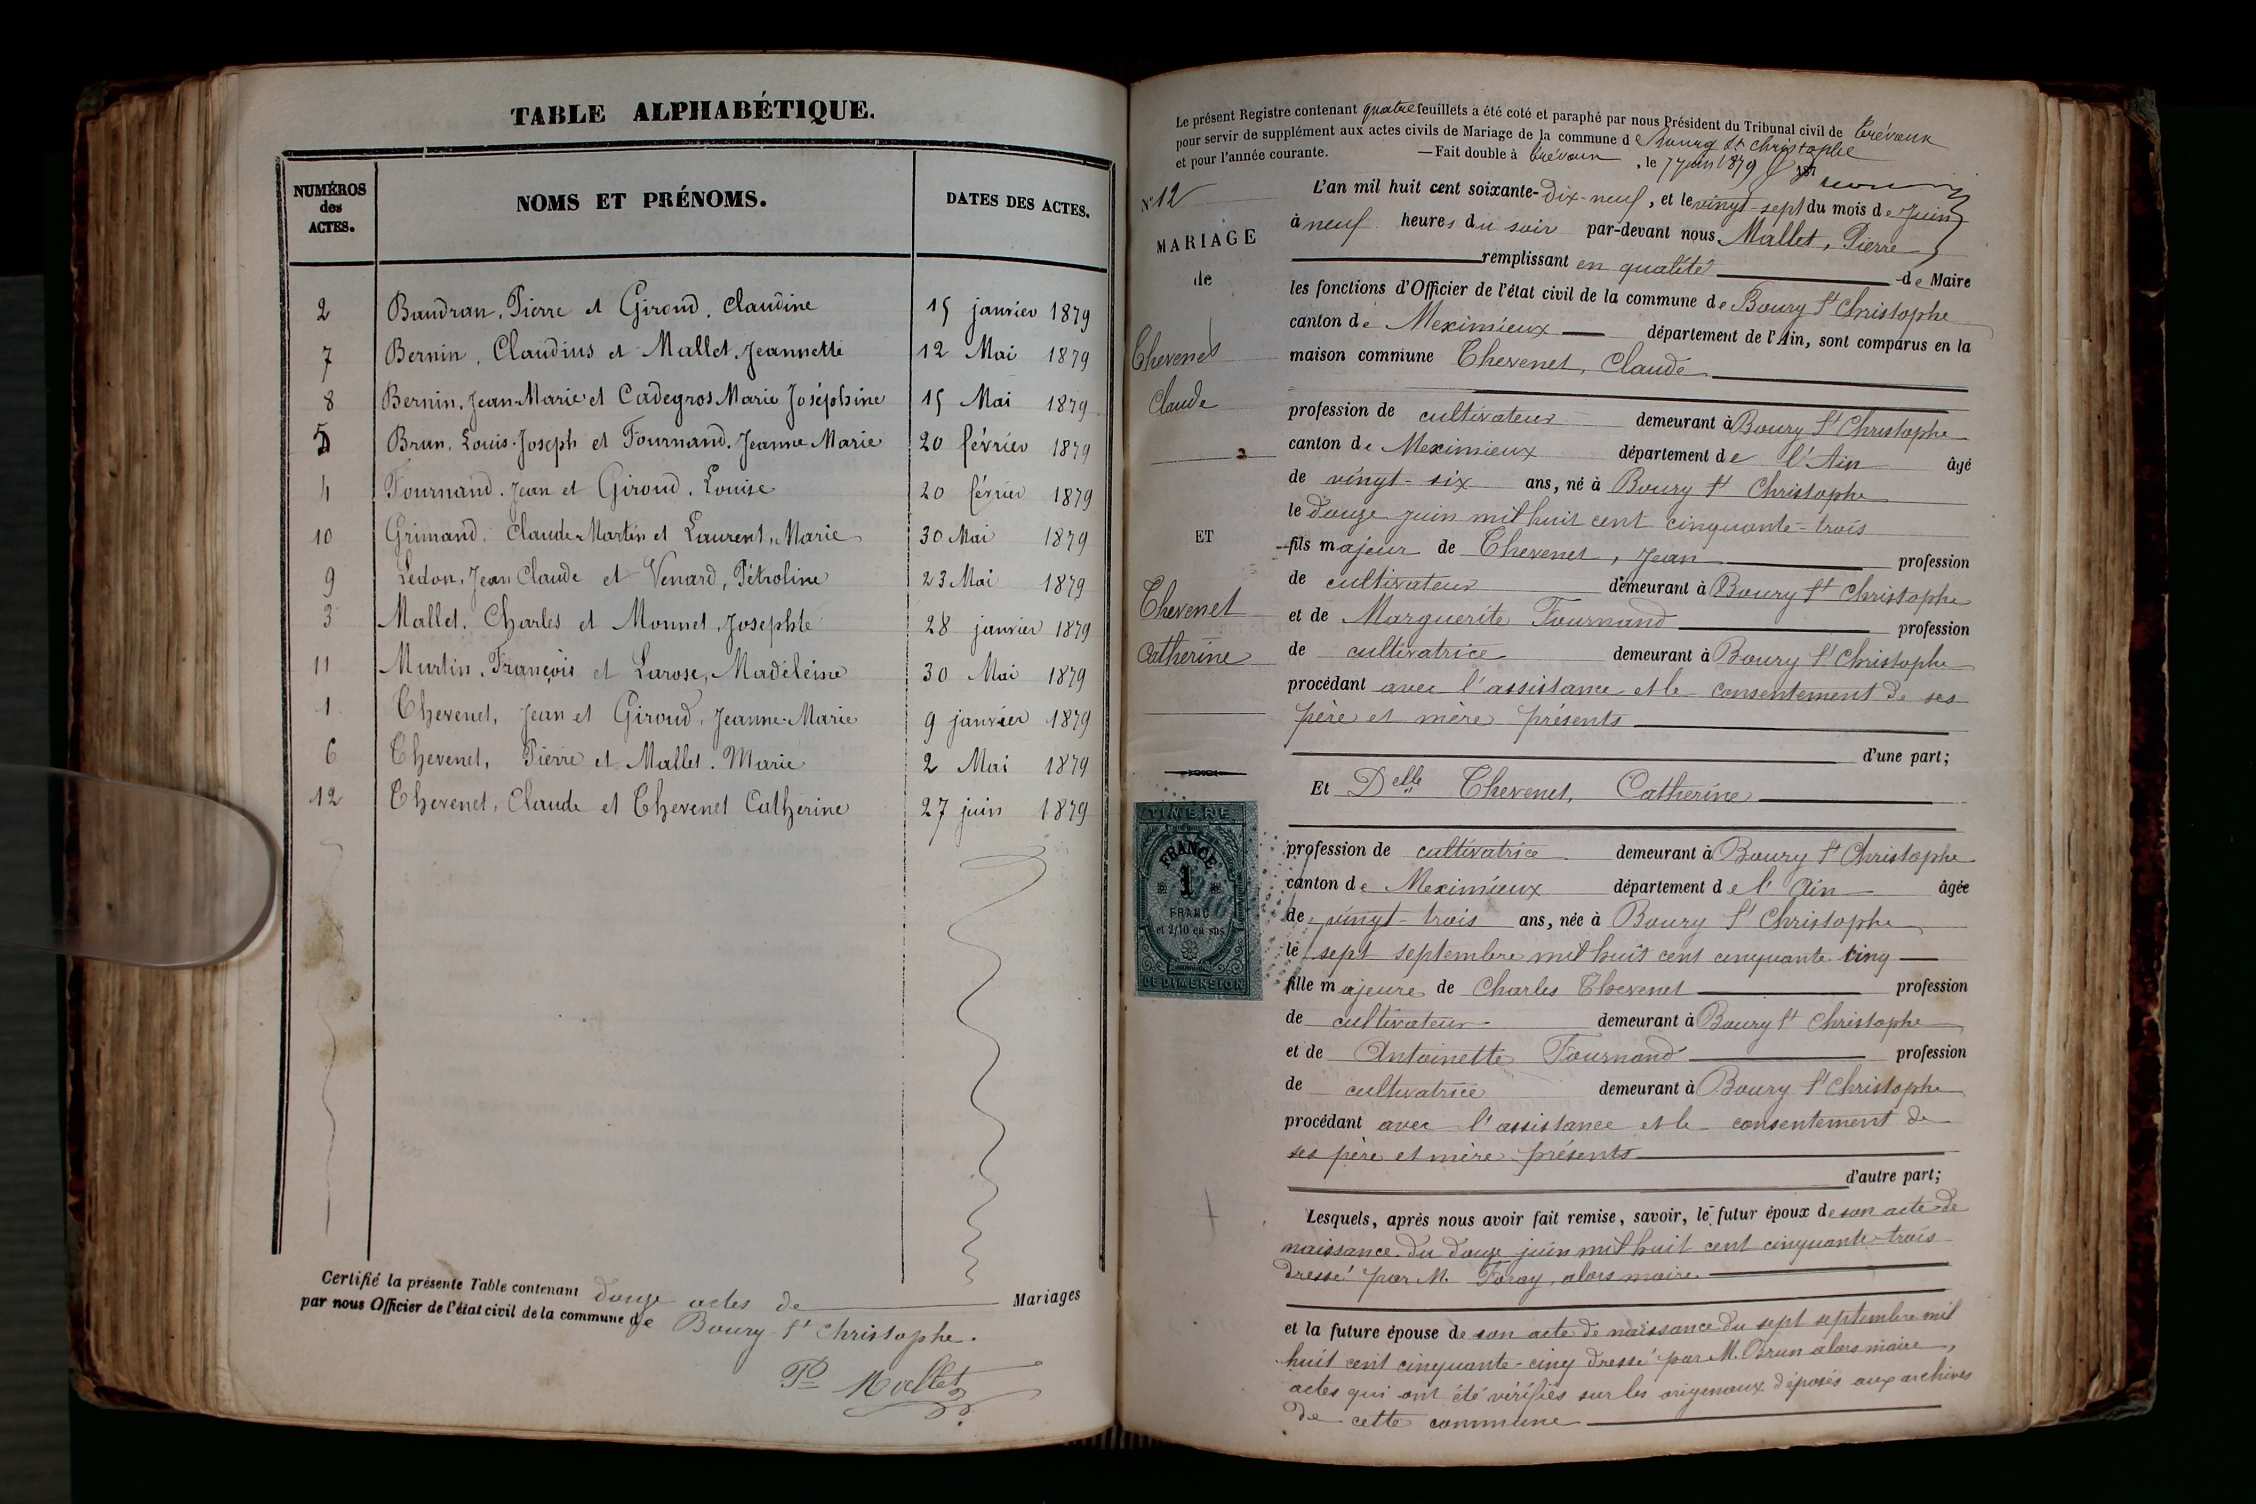 TABLE ALPHABÉTIQUE.
NUMÉROS des ACTES. NOMS ET PRÉNOMS. DATES DES ACTES.
2 Baudran, Pierre et Giroud, Claudine 15 janvier 1879
7 Bernin, Claudius et Mallet, Jeannette 12 Mai 1879
8 Bernin, Jean-Marie et Cadegros Marie Joséphine 15 Mai 1879
5 Brun, Louis-Joseph et Fournand, Jeanne Marie 20 février 1879
4 Fournand, Jean et Giroud, Louise 20 février 1879
10 Grimand, Claude-Martin et Laurent, Marie 30 Mai 1879
9 Ledon, Jean Claude et Venard, Pétroline 23 Mai 1879
3 Mallet, Charles et Monnet, Josephte 28 janvier 1879
11 Murtin, François et Larose, Madeleine 30 Mai 1879
1 Thevenet, Jean et Giroud, Jeanne-Marie 9 janvier 1879
6 Thevenet, Pierre et Mallet, Marie 2 Mai 1879
12 Thevenet, Claude et Thevenet Catherine 27 juin 1879
Certifié la présente Table contenant douze actes de Mariages
par nous Officier de l'état civil de la commune de Bourg St Christophe.
P. Mallet
Le présent Registre contenant quatre feuillets a été coté et paraphé par nous Président du Tribunal civil de Trévoux
pour servir de supplément aux actes civils de Mariage de la commune de Bourg St Christophe
et pour l'année courante. —Fait double à Trévoux, le 7 juin 1879
N° 12
MARIAGE
de
Thevenet
Claude
ET
Thevenet
Catherine
TIMBRE
FRANCE
1
FRANC
et 2/10 en sus
DE DIMENSION
L'an mil huit cent soixante-dix-neuf, et le vingt-sept du mois de Juin
à neuf heures du soir par-devant nous Mallet, Pierre
remplissant en qualité de Maire
les fonctions d'Officier de l'état civil de la commune de Bourg St Christophe
canton de Meximieux département de l'Ain, sont comparus en la
maison commune Thevenet, Claude
profession de cultivateur demeurant à Bourg St Christophe
canton de Meximieux département de l'Ain âgé
de vingt-six ans, né à Bourg St Christophe
le douze juin mil huit cent cinquante-trois
fils majeur de Thevenet, Jean profession
de cultivateur demeurant à Bourg St Christophe
et de Marguerite Fournand profession
de cultivatrice demeurant à Bourg St Christophe
procédant avec l'assistance et le consentement de ses
père et mère présents
d'une part;
Et Delle Thevenet, Catherine
profession de cultivatrice demeurant à Bourg St Christophe
canton de Meximieux département de l'Ain âgée
de vingt-trois ans, née à Bourg St Christophe
le sept septembre mil huit cent cinquante cinq
fille majeure de Charles Thevenet profession
de cultivateur demeurant à Bourg St Christophe
et de Antoinette Fournand profession
de cultivatrice demeurant à Bourg St Christophe
procédant avec l'assistance et le consentement de
ses père et mère présents
d'autre part;
Lesquels, après nous avoir fait remise, savoir, le futur époux de son acte de
naissance du douze juin mil huit cent cinquante-trois
dressé par M. Foray, alors maire.
et la future épouse de son acte de naissance du sept septembre mil
huit cent cinquante-cinq dressé par M. Brun alors maire,
actes qui ont été vérifiés sur les origenaux déposés aux archives
de cette commune